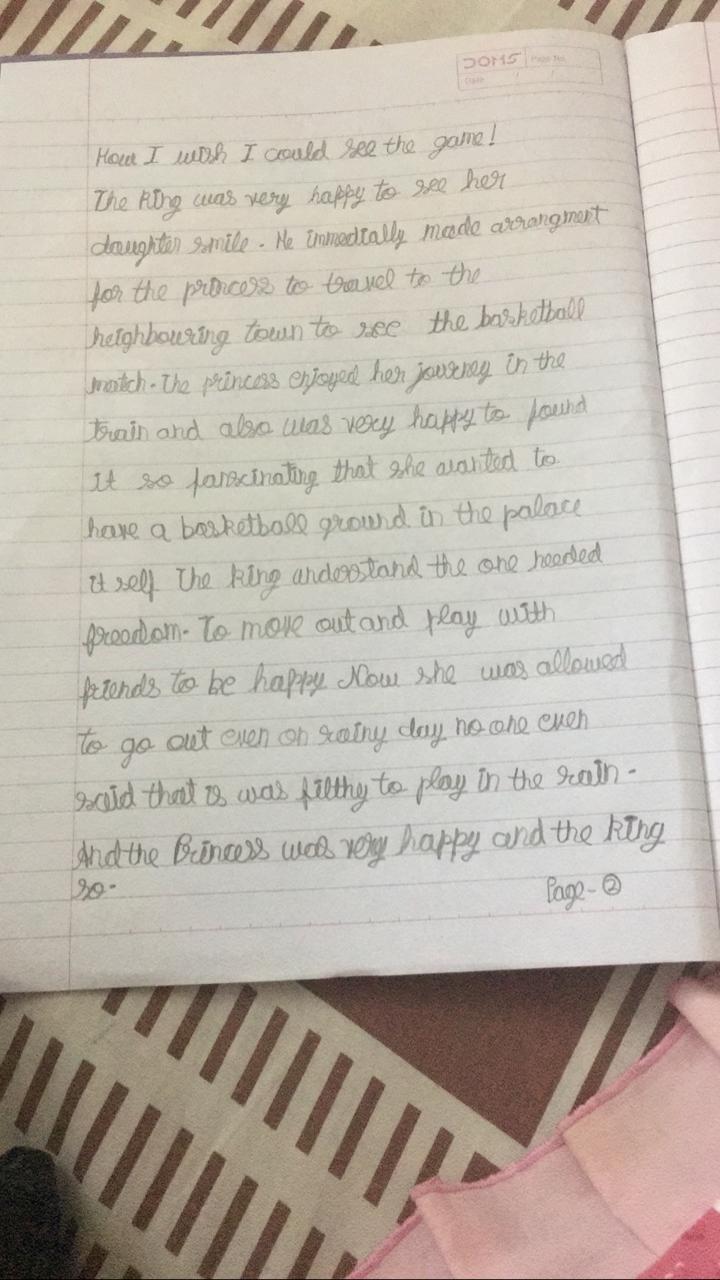 DOMS Page No.
Date / /
How I wish I could see the game!
The King was very happy to see her
daughter smile. He immedially made arrangment
for the princess to travel to the
neighbouring town to see the basketball
match. The princess enjoyed her journey in the
train and also was very happy to found
it so fanscinating that she wanted to
have a basketball ground in the palace
it self The king understand the one needed
freedom. To move out and play with
friends to be happy Now she was allowed
to go out even on rainy day no one even
said that is was filthy to play in the rain.
And the Princess was very happy and the king
so.
Page-②